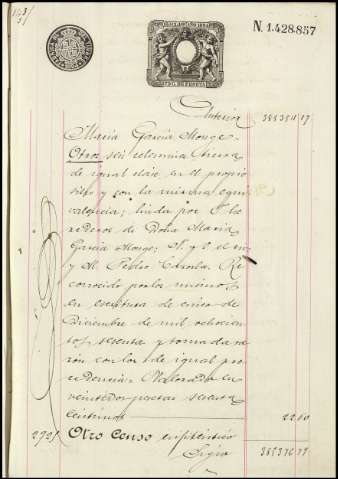 N. 1.428.857
Anterior
Maria Garcia Monge.
Otros seis celemines tierra
de igual clase en el propio
sitio y con la misma equi
valencia; linda por
rederos de Doña Maria
Garcia Monge;
y M. Pedro
conocido por los mismos
en escritura de cinco de
Diciembre de mil ochocien
tos sesenta y tomada ra
zón con los de igual pro
cedencia. Valorado en
veintidos pesetas sesenta
centimos 22,60
292/ Otro Censo enfiteutico
Sigue